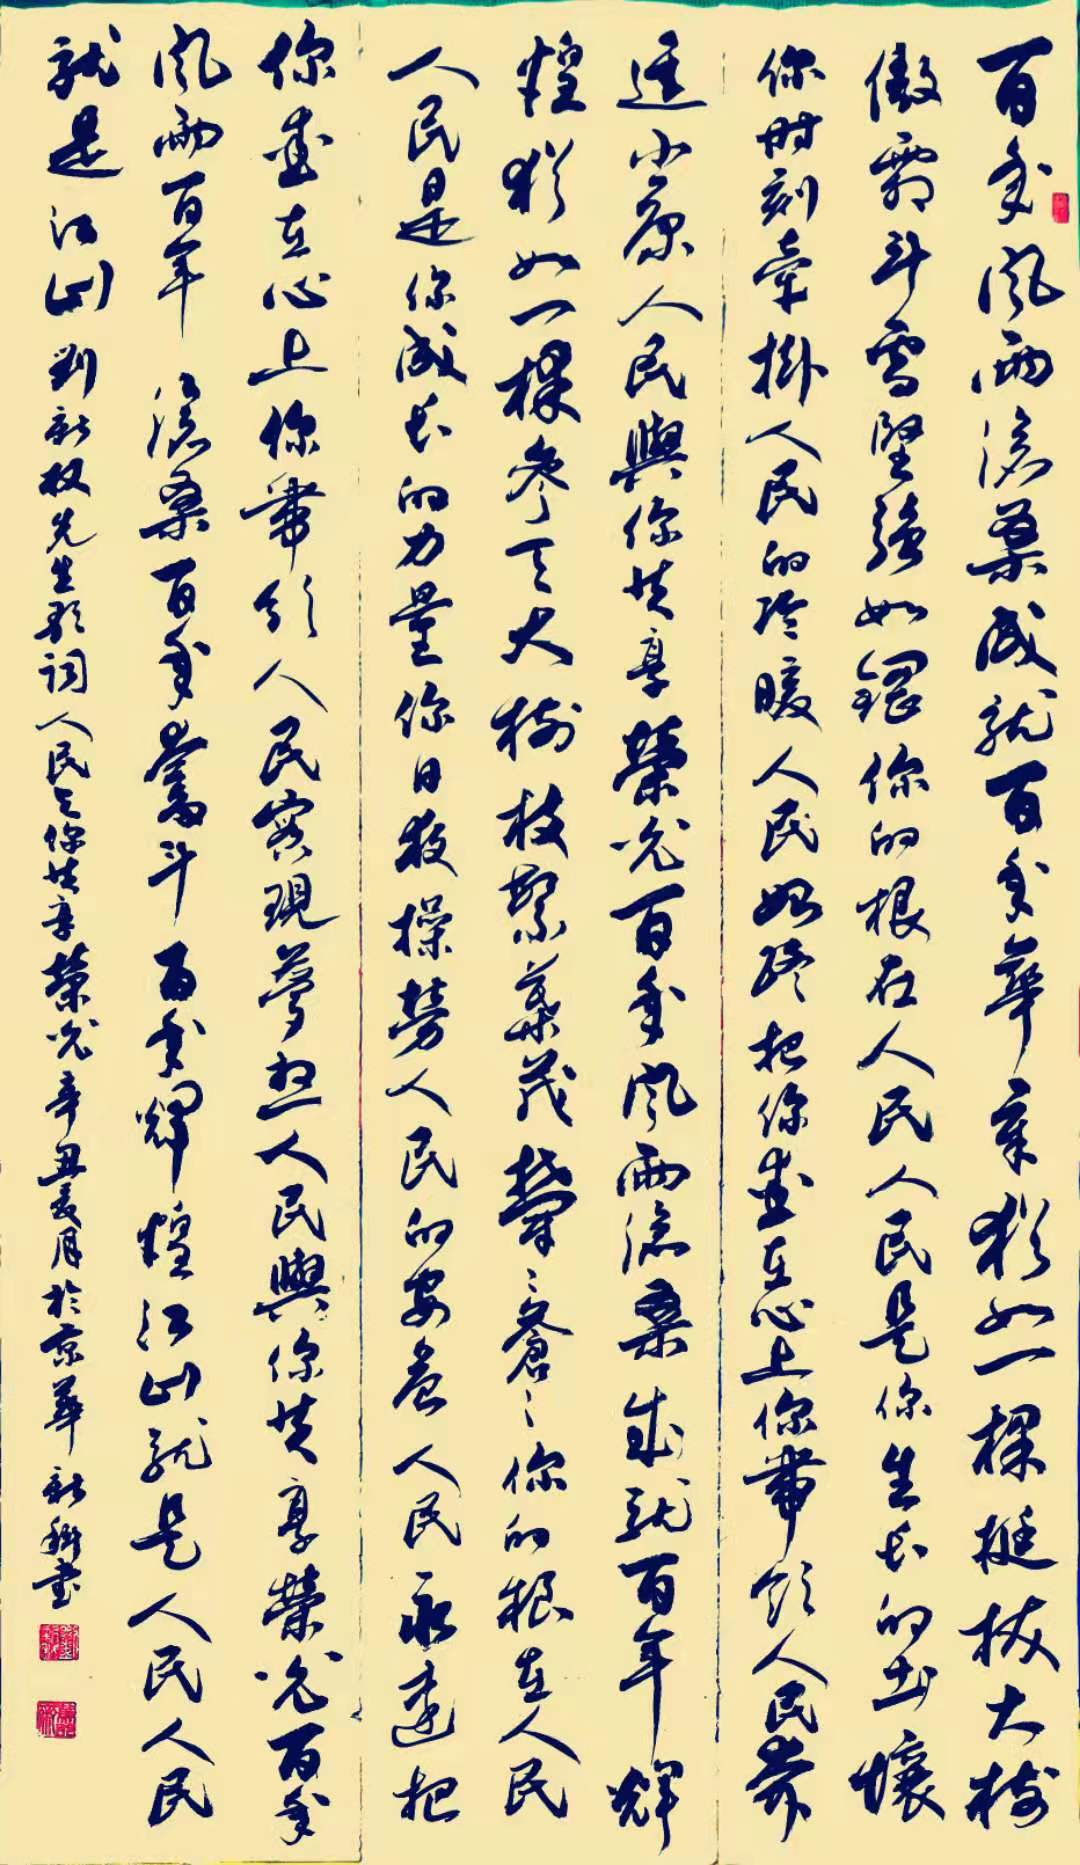 百年風雨滄桑成就百年華章猶如一棵挺拔大樹
傲霜斗雪堅強如鋼你的根在人民人民是你生長的土壤
你時刻牽掛人民的冷暖人民始終把你在心上你帶領人民奔
進小康人民與你共享榮光百年風雨滄桑成就百年輝
煌猶如一棵參天大樹枝繁葉茂鬱々蒼々你的根在人民
人民是你成長的力量你日夜操勞人民的安危人民永遠把
你在心上你帶領人民實現夢想人民與你共享榮光百年
風雨百年滄桑百年奮斗百年輝煌江山就是人民人民
就是江山 劉新权先生歌詞人民与你共享榮光辛丑夏月於京華 新科書